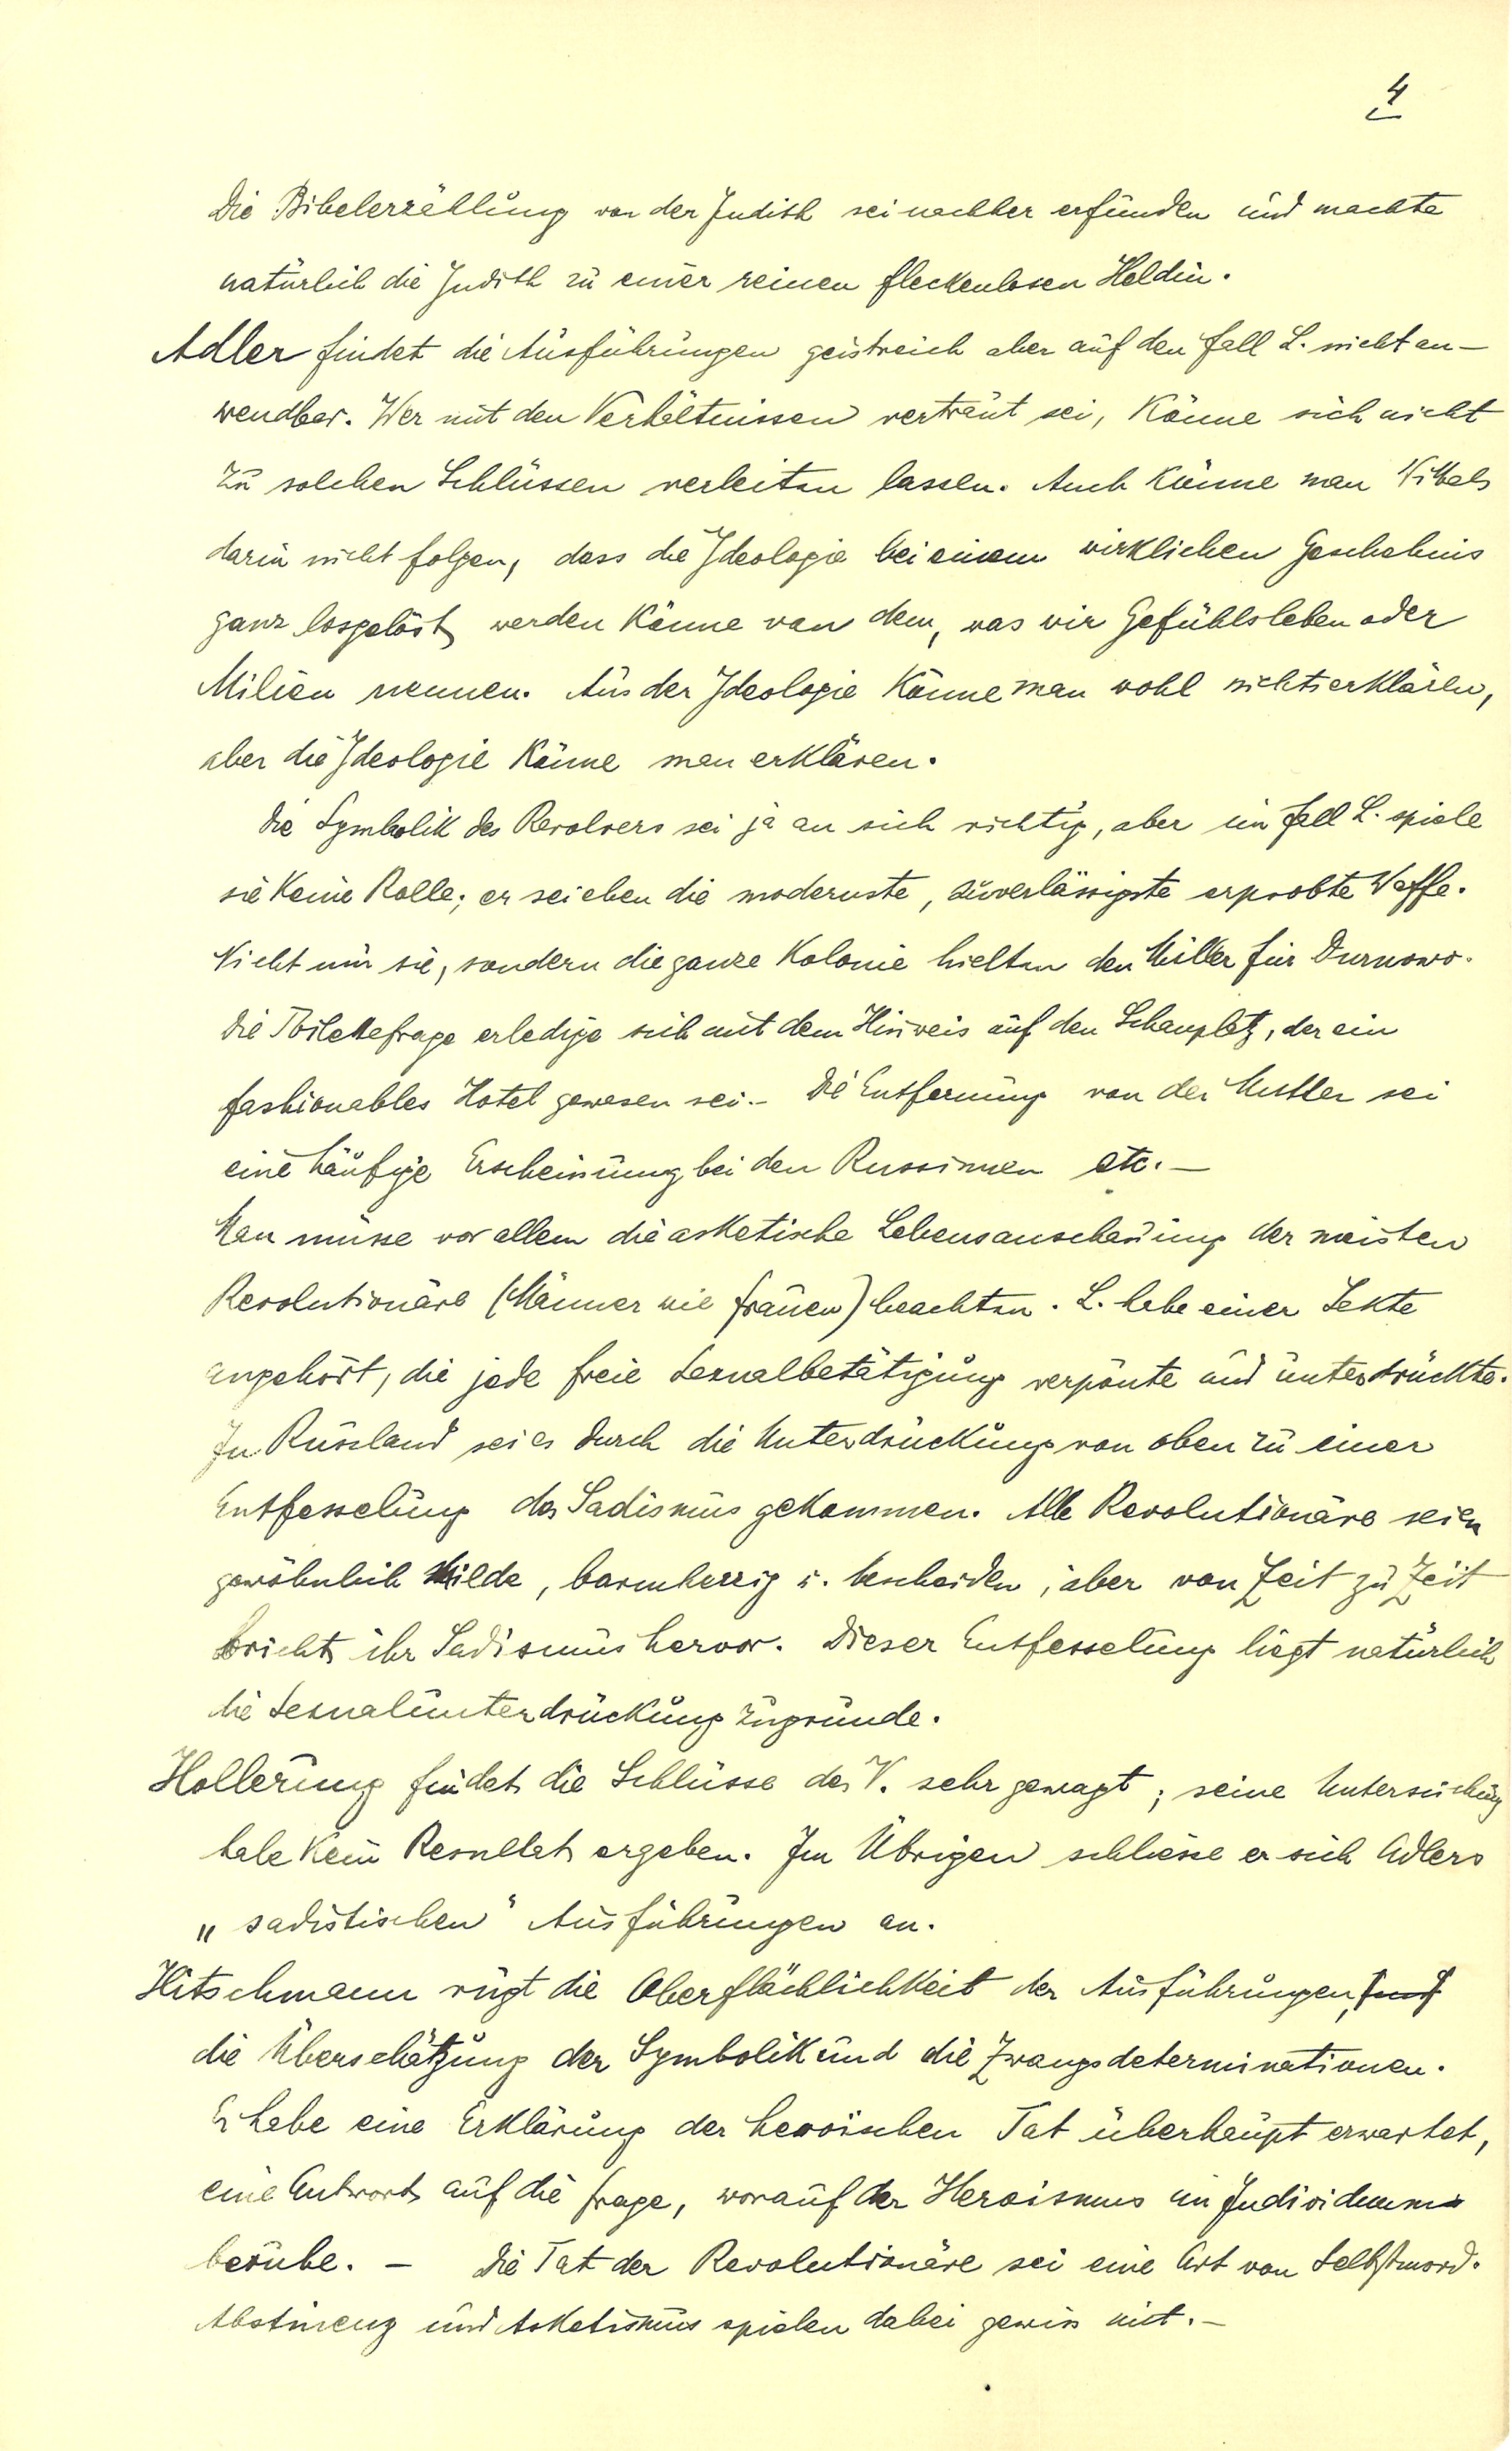 4
Die Bibelerzählung von der Judith sei nachher erfunden und machte
natürlich die Judith zu einer reinen fleckenlosen Heldin.
Adler findet die Ausführungen geistreich aber auf den Fall L. nicht an-
wendbar. Wer mit den Verhältnissen vertraut sei, könne sich nicht
zu solchen Schlüssen verleiten lassen. Auch könne man Wittels
darin nicht folgen, dass die Ideologie bei einem wirklichen Geschehnis
ganz losgelöst werden könne von dem, was wir Gefühlsleben oder
Milieu nennen. Aus der Ideologie könne man wohl nichts erklären,
aber die Ideologie könne man erklären.
Die Symbolik des Revolvers sei ja an sich richtig, aber im Fall L. spiele
sie keine Rolle; er sei eben die modernste, zuverlässigste erprobte Waffe.
Nicht nur sie, sondern die ganze Kolonie hielten den Müller für Durnowo.
Die Toilettefrage erledige sich mit dem Hinweis auf den Schauplatz, der ein
fashionables Hotel gewesen sei.- Die Entfernung von der Mutter sei
eine häufige Erscheinung bei den Russinnen etc.-
Man müsse vor allem die asketische Lebensanschauung der meisten
Revolutionäre (Männer wie Frauen) beachten. L. habe einer Sekte
angehört, die jede freie Sexualbetätigung verpönte und unterdrückte.
In Russland sei es durch die Unterdrückung von oben zu einer
Entfesselung des Sadismus gekommen. Alle Revolutionäre seien
gewöhnlich milde, barmherzig u. bescheiden, aber von Zeit zu Zeit
bricht ihr Sadismus hervor. Dieser Entfesselung liegt natürlich
die Sexualunterdrückung zugrunde.
Hollerung findet die Schlüsse des V. sehr gewagt; seine Untersuchung
habe kein Resultat ergeben. Im Übrigen schliesse er sich Adlers
„sadistischen" Ausführungen an.
Hitschmann rügt die Oberflächlichkeit der Ausführungen,
die Überschätzung der Symbolik und die Zwangsdeterminationen.
Er habe eine Erklärung der heroischen Tat überhaupt erwartet,
eine Antwort auf die Frage, worauf der Heroismus im Individuum
beruhe. - Die Tat der Revolutionäre sei eine Art von Selbstmord.
Abstinenz und Asketismus spielen dabei gewiss mit.-